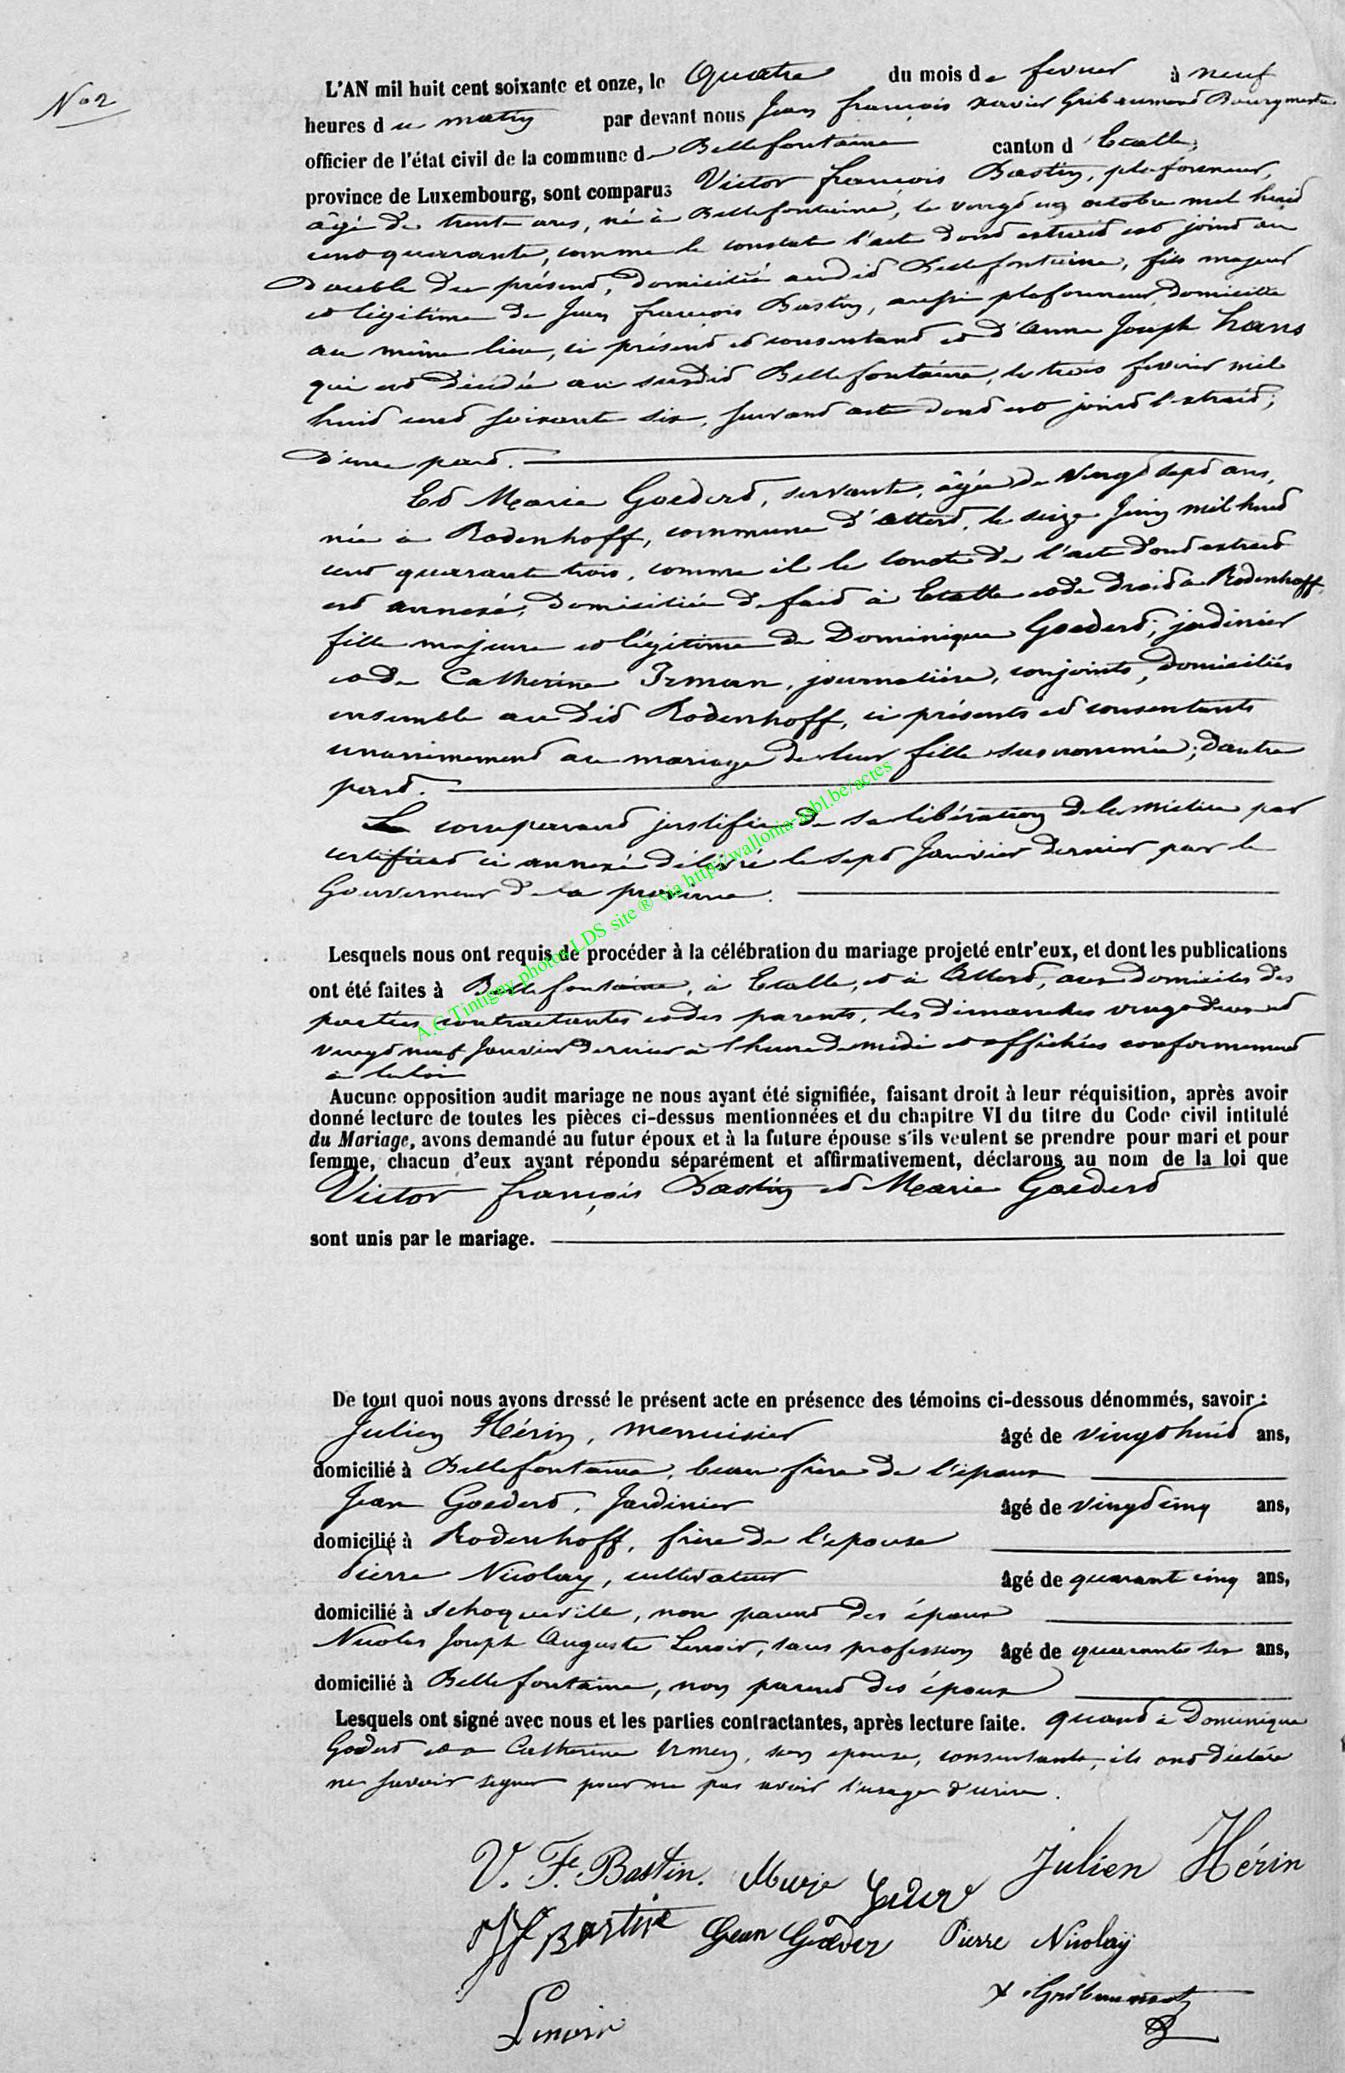 No 2
L'AN mil huit cent soixante et onze, le Quatre du mois de fevrier à neuf
heures du matin par devant nous Jean françois xavier Gribaumont Bourgmestre
officier de l'état civil de la commune de Bellefontaine canton d'Etalle,
province de Luxembourg, sont comparus Victor françois Bastin, plafonneur,
âgé de trente ans, né à Bellefontaine, le vingt un octobre mil huit
cent quarante, comme le constate l'acte dont extrait est joint au
double du présent, domicilié audit Bellefontaine, fils majeur
et légitime de Jean françois Bastin, aussi plafonneur, domicilié
au même lieu, ci présent et consentant et d'anne Joseph hans
qui est décédée au susdit Bellefontaine, le trois fevrier mil
huit cent soixante six, suivant acte dont est joint l'extrait,
d'une part.
Et Marie Goedert, servante, âgée de vingt sept ans,
née à Rodenhoff, commune d'attert, le seize Juin mil huit
cent quarante trois, comme il le conste de l'acte dont extrait
est annexé, domiciliée de fait à Etalle et de droit à Rodenhoff,
fille majeure et légitime de Dominique Goedert, jardinier
et de Catherine Irman, journalière, conjoints, domiciliés
ensemble au dit Rodenhoff, ci présents et consentants
unanimement au mariage de leur fille susnommée; d'autre
part.
Le comparant justifie de sa libération de la milice par
certificat ci annexé délivré le sept Janvier dernier par le
Gouverneur de la province.
Lesquels nous ont requis de procéder à la célébration du mariage projeté entr'eux, et dont les publications
ont été faites à Bellefontaine, à Etalle, et à Attert, aux domiciles des
parties contractantes et des parents, les dimanches vingt deux et
vingt neuf Janvier dernier à l'heure de midi et affichées conformement
à la loi
Aucune opposition audit mariage ne nous ayant été signifiée, faisant droit à leur réquisition, après avoir
donné lecture de toutes les pièces ci-dessus mentionnées et du chapitre VI du titre du Code civil intitulé
du Mariage, avons demandé au futur époux et à la future épouse s'ils veulent se prendre pour mari et pour
femme, chacun d'eux ayant répondu séparément et affirmativement, déclarons au nom de la loi que
Victor françois Bastin et Marie Goedert
sont unis par le mariage.
De tout quoi nous avons dressé le présent acte en présence des témoins ci-dessous dénommés, savoir :
Julien Hérin, menuisier âgé de vingt huit ans,
domicilié à Bellefontaine, beau frère de l'époux
Jean Goedert, Jardinier âgé de vingt cinq ans,
domicilié à Rodenhoff, frère de l'epouse
Pierre Nicolay, cultivateur âgé de quarant cinq ans,
domicilié à Schoqueville, non parent des époux
Nicolas Joseph Auguste Lenoir, sans profession âgé de quarante six ans,
domicilié à Bellefontaine, non parent des époux
Lesquels ont signé avec nous et les parties contractantes, après lecture faite. quand à Dominique
Godert et a Catherine Irmen, son epouse, consentants, ils ont déclaré
ne savoir signer pour ne pas avoir l'usage d'ecrire.
V. F. Bastin. Marje Julien Hérin
JF Bastin Gean Gœder Pierre Nicolaÿ
x Gribaumont
Lenoir
A.C Tintigny photos LDS site ® via http://wallonia-asbl.be/actes